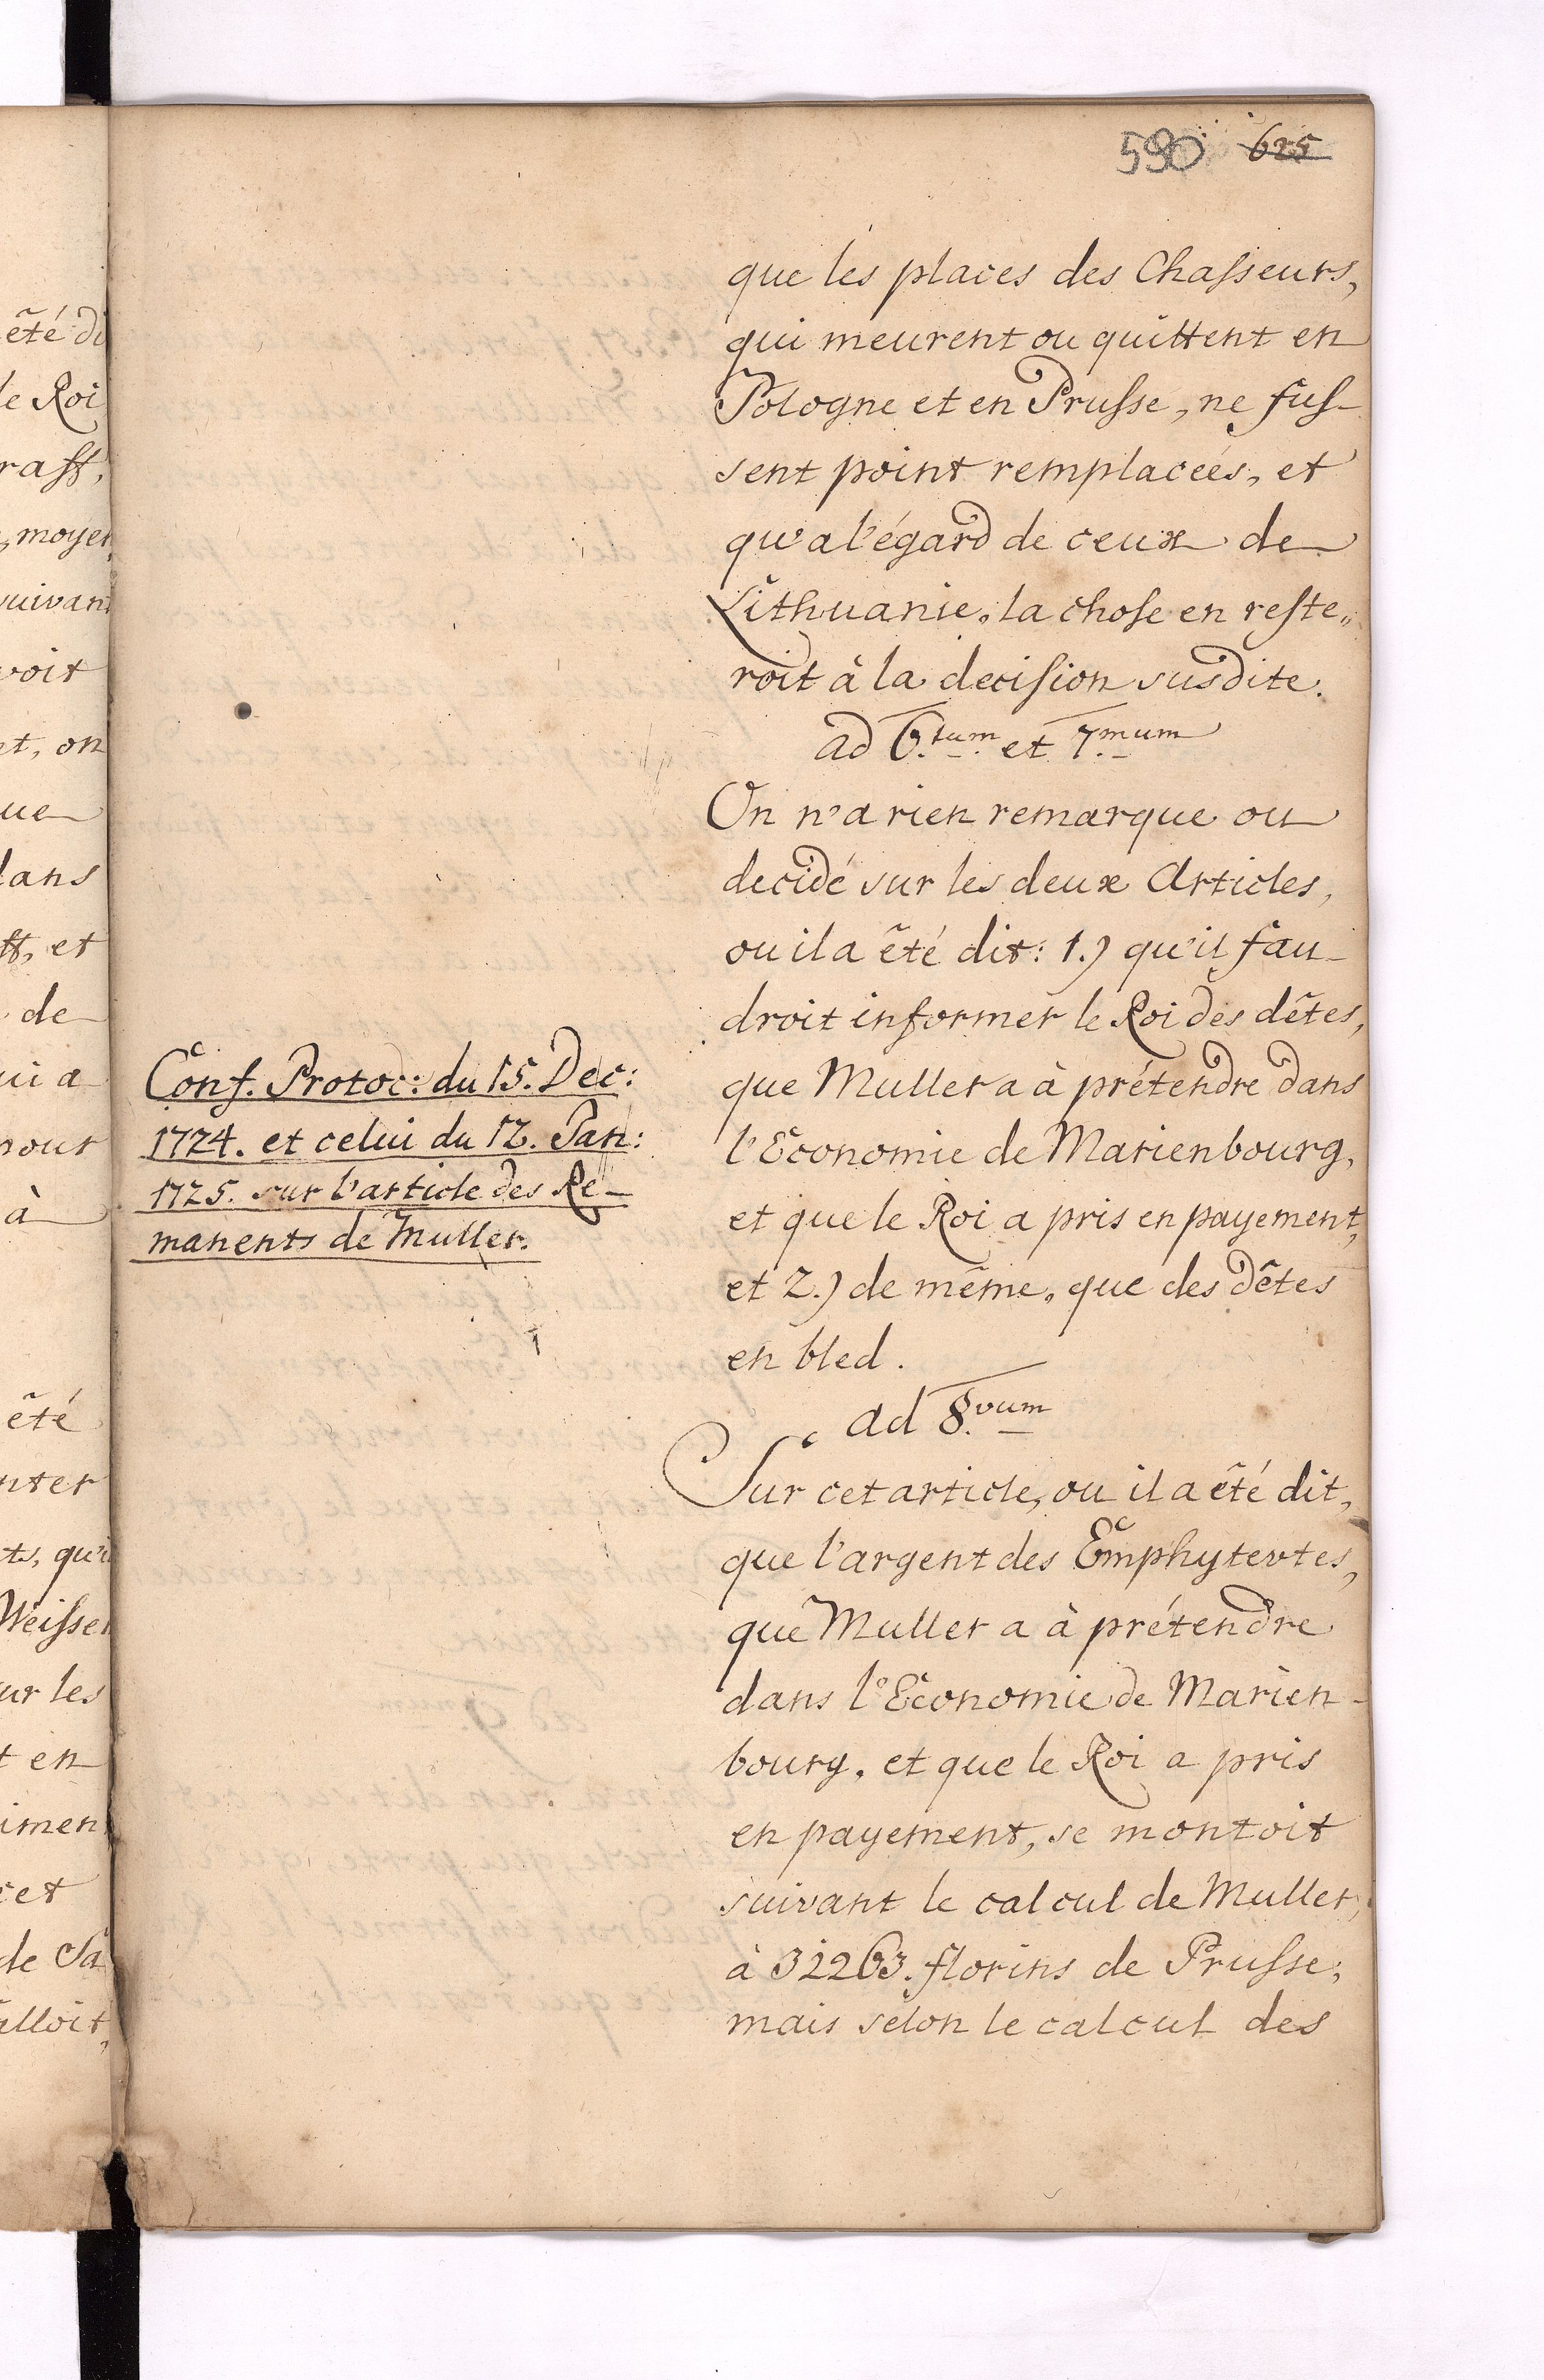 590 625
que les places des Chasseurs,
qui meurent ou quittent en
Pologne et en Prusse, ne fus-
sent point remplaceés, et
qu'a l'égard de ceux de
Lithuanie, la chose en reste„
roit à la decision susdite.
ad 6.tum et 7.mum
On n'a rien remarque ou
decidé sur les deux Articles,
ou il a êté dit: 1.) qu'il fau-
droit informer le Roi des dêtes,
que Muller a à prétendre dans
l'Economie de Marienbourg,
et que le Roi a pris en payement,
et 2.) de même, que des dêtes
en bled.
ad 8.vum
Sur cet article, ou il a êté dit,
que l'argent des Emphytevtes,
que Muller a à prétendre
dans l'Economie de Marien-
bourg, et que le Roi a pris
en payement, se montoit
suivant le calcul de Muller,
à 31263. florins de Prusse;
mais selon le calcul des
Conf. Protoc: du 15. Dec:
1724. et celui du 12. Jan:
1725. sur l'article des Re-
manents de Muller.
êté di
le Roi
raff,
moyen
suivant
voit
et, on
ue
dans
ff, et
de
ui a
pour
à
êté
nter
ts, qu'i
Weissen
ur les
t en
imen
cet
de Sa
alloit,